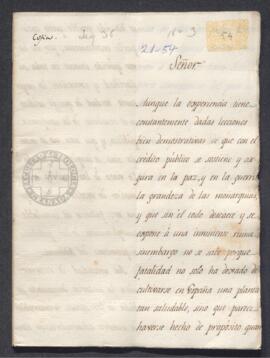 Copia
21-54
54
Señor
Aunque la experiencia tiene
constantemente dadas lecciones
bien demostrativas de que con el
crédito público se sostiene y ase
gura en la paz, y en la guerra
la grandeza de las monarquias,
y que sin el todo decaece y se
expone á una inminente ruina
sinembargo no se sabe porque
fatalidad no solo ha dexado de
cultivarse en España una planta
tan saludable, sino que parece
haverse hecho de propósito quan